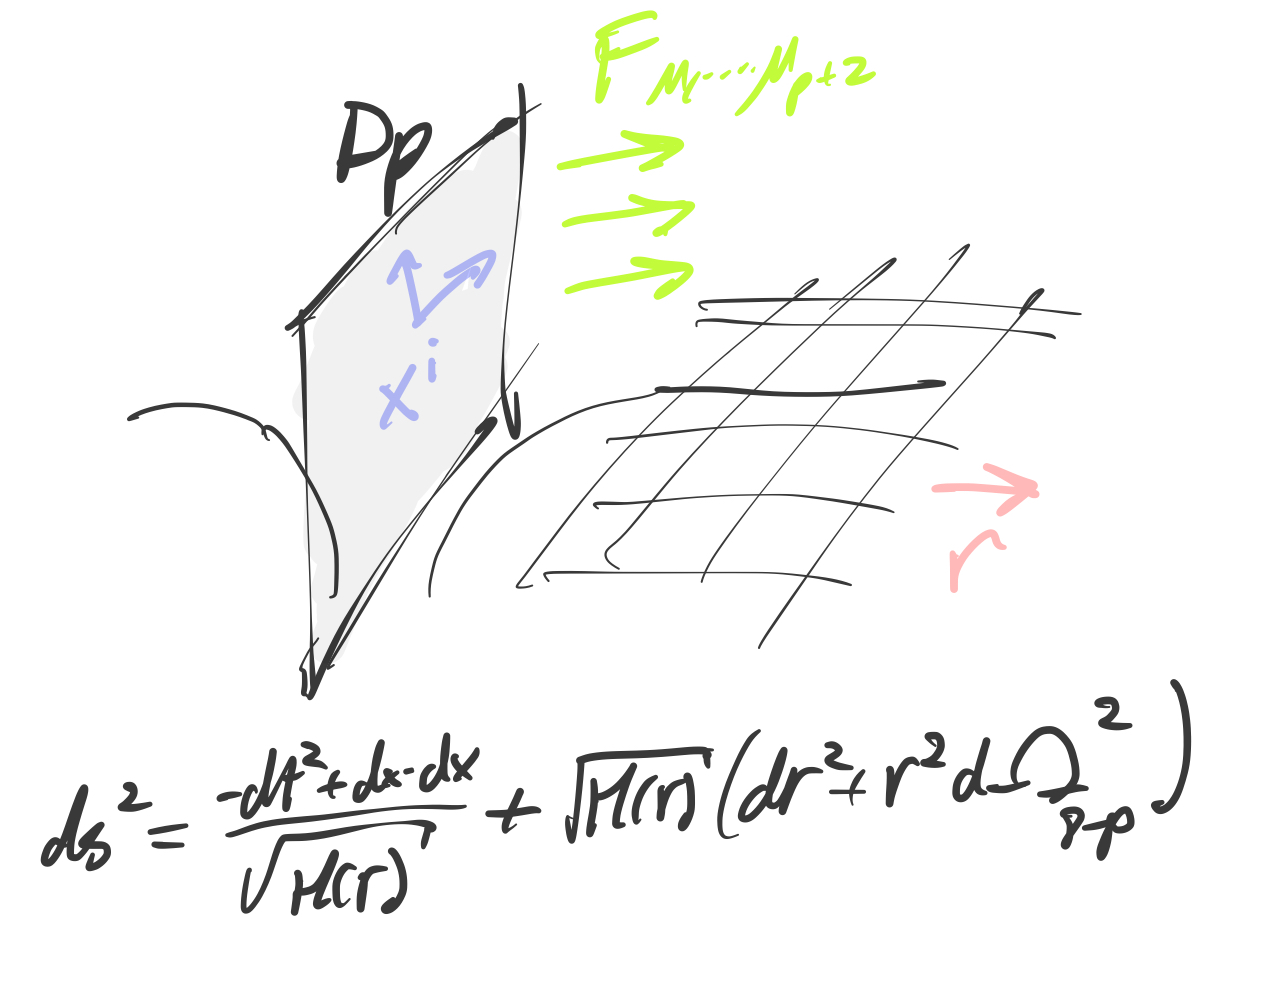 F_{μ₁....μ_{p+2}}
Dp
xⁱ
r
ds² = (-dt² + dx·dx)/√H(r) + √H(r) (dr² + r² dΩ²_{8-p})